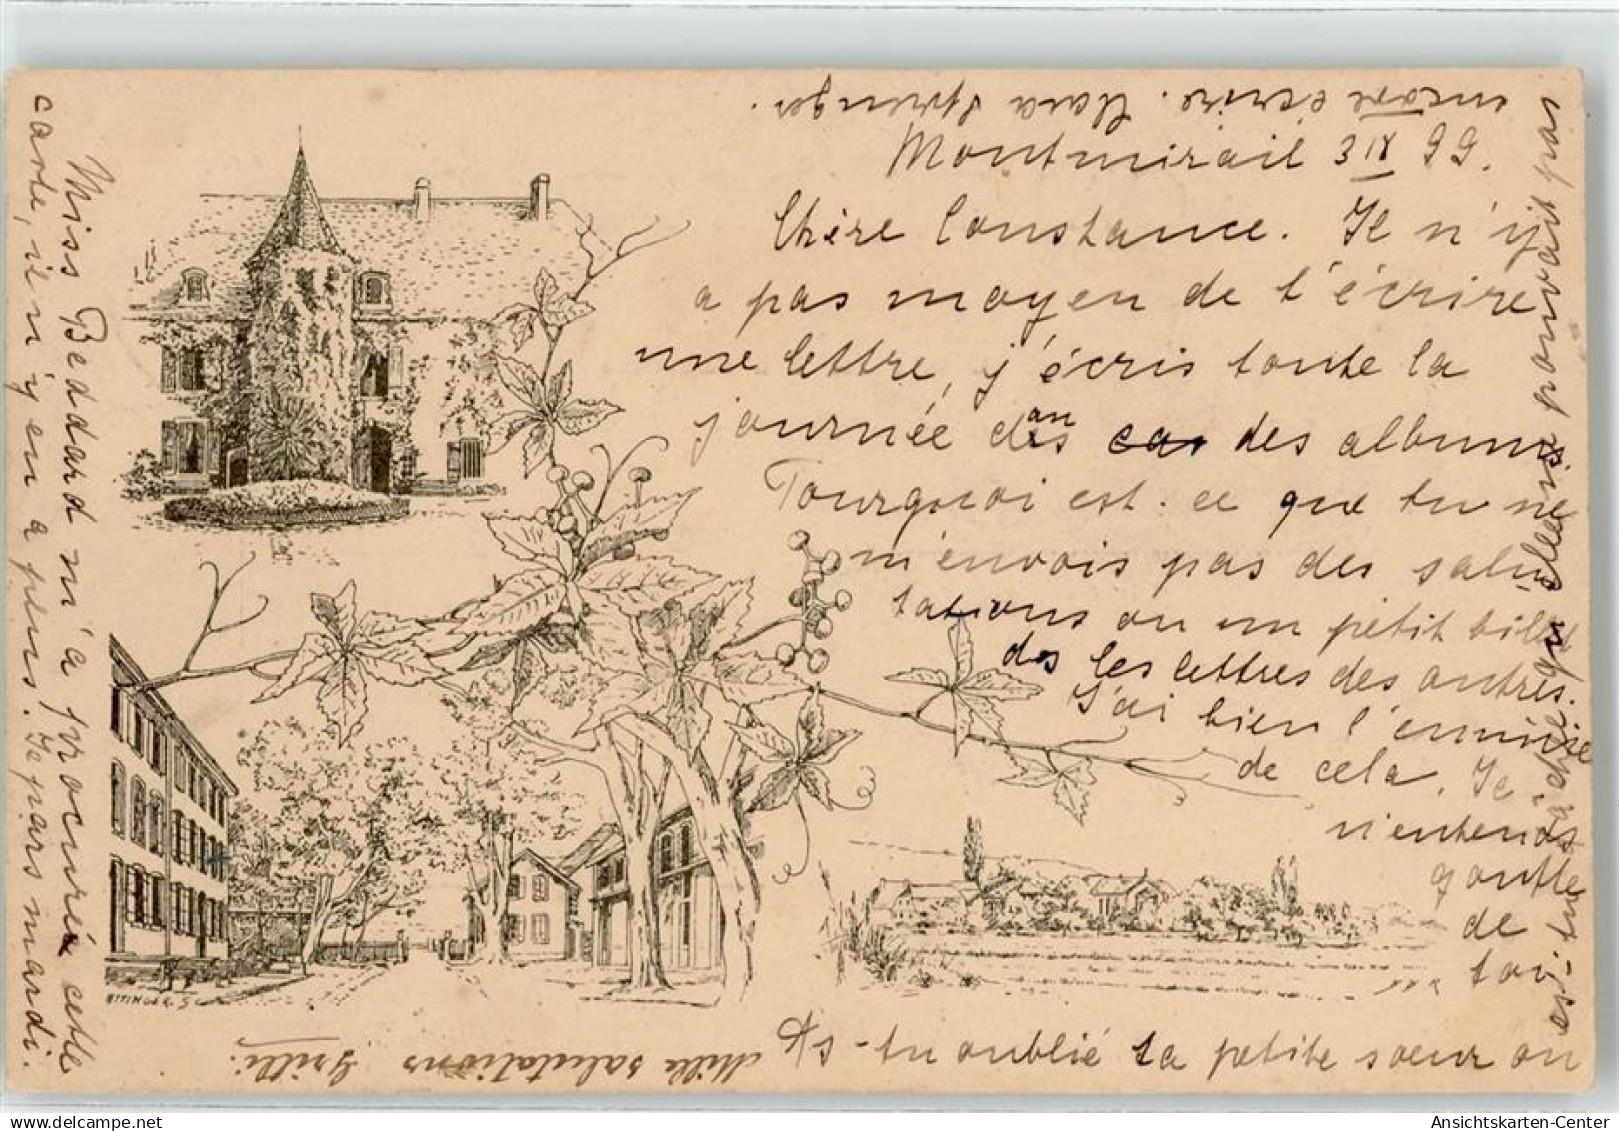 Montmirail 3 IX 99.
Chère Constance. Il n'y
a pas moyen de t'écrire
une lettre, j'écris toute la
journée dans des albums.
Pourquoi est-ce que tu ne
m'envois pas des salu
tations ou un petit bil
les lettres des autres.
J'ai bien l'ennuie
de cela. Je
n'entends
goutte
de
toi
As-tu oublié ta petite sœur ou
es-tu
pouvait pas
encore écrire. Clara
Miss Beddard m'a procuré cette
carte, il n'y en a plus. Je pars mardi.
Mille salutations
ATTINGER. SC
Ansichtskarten-Center